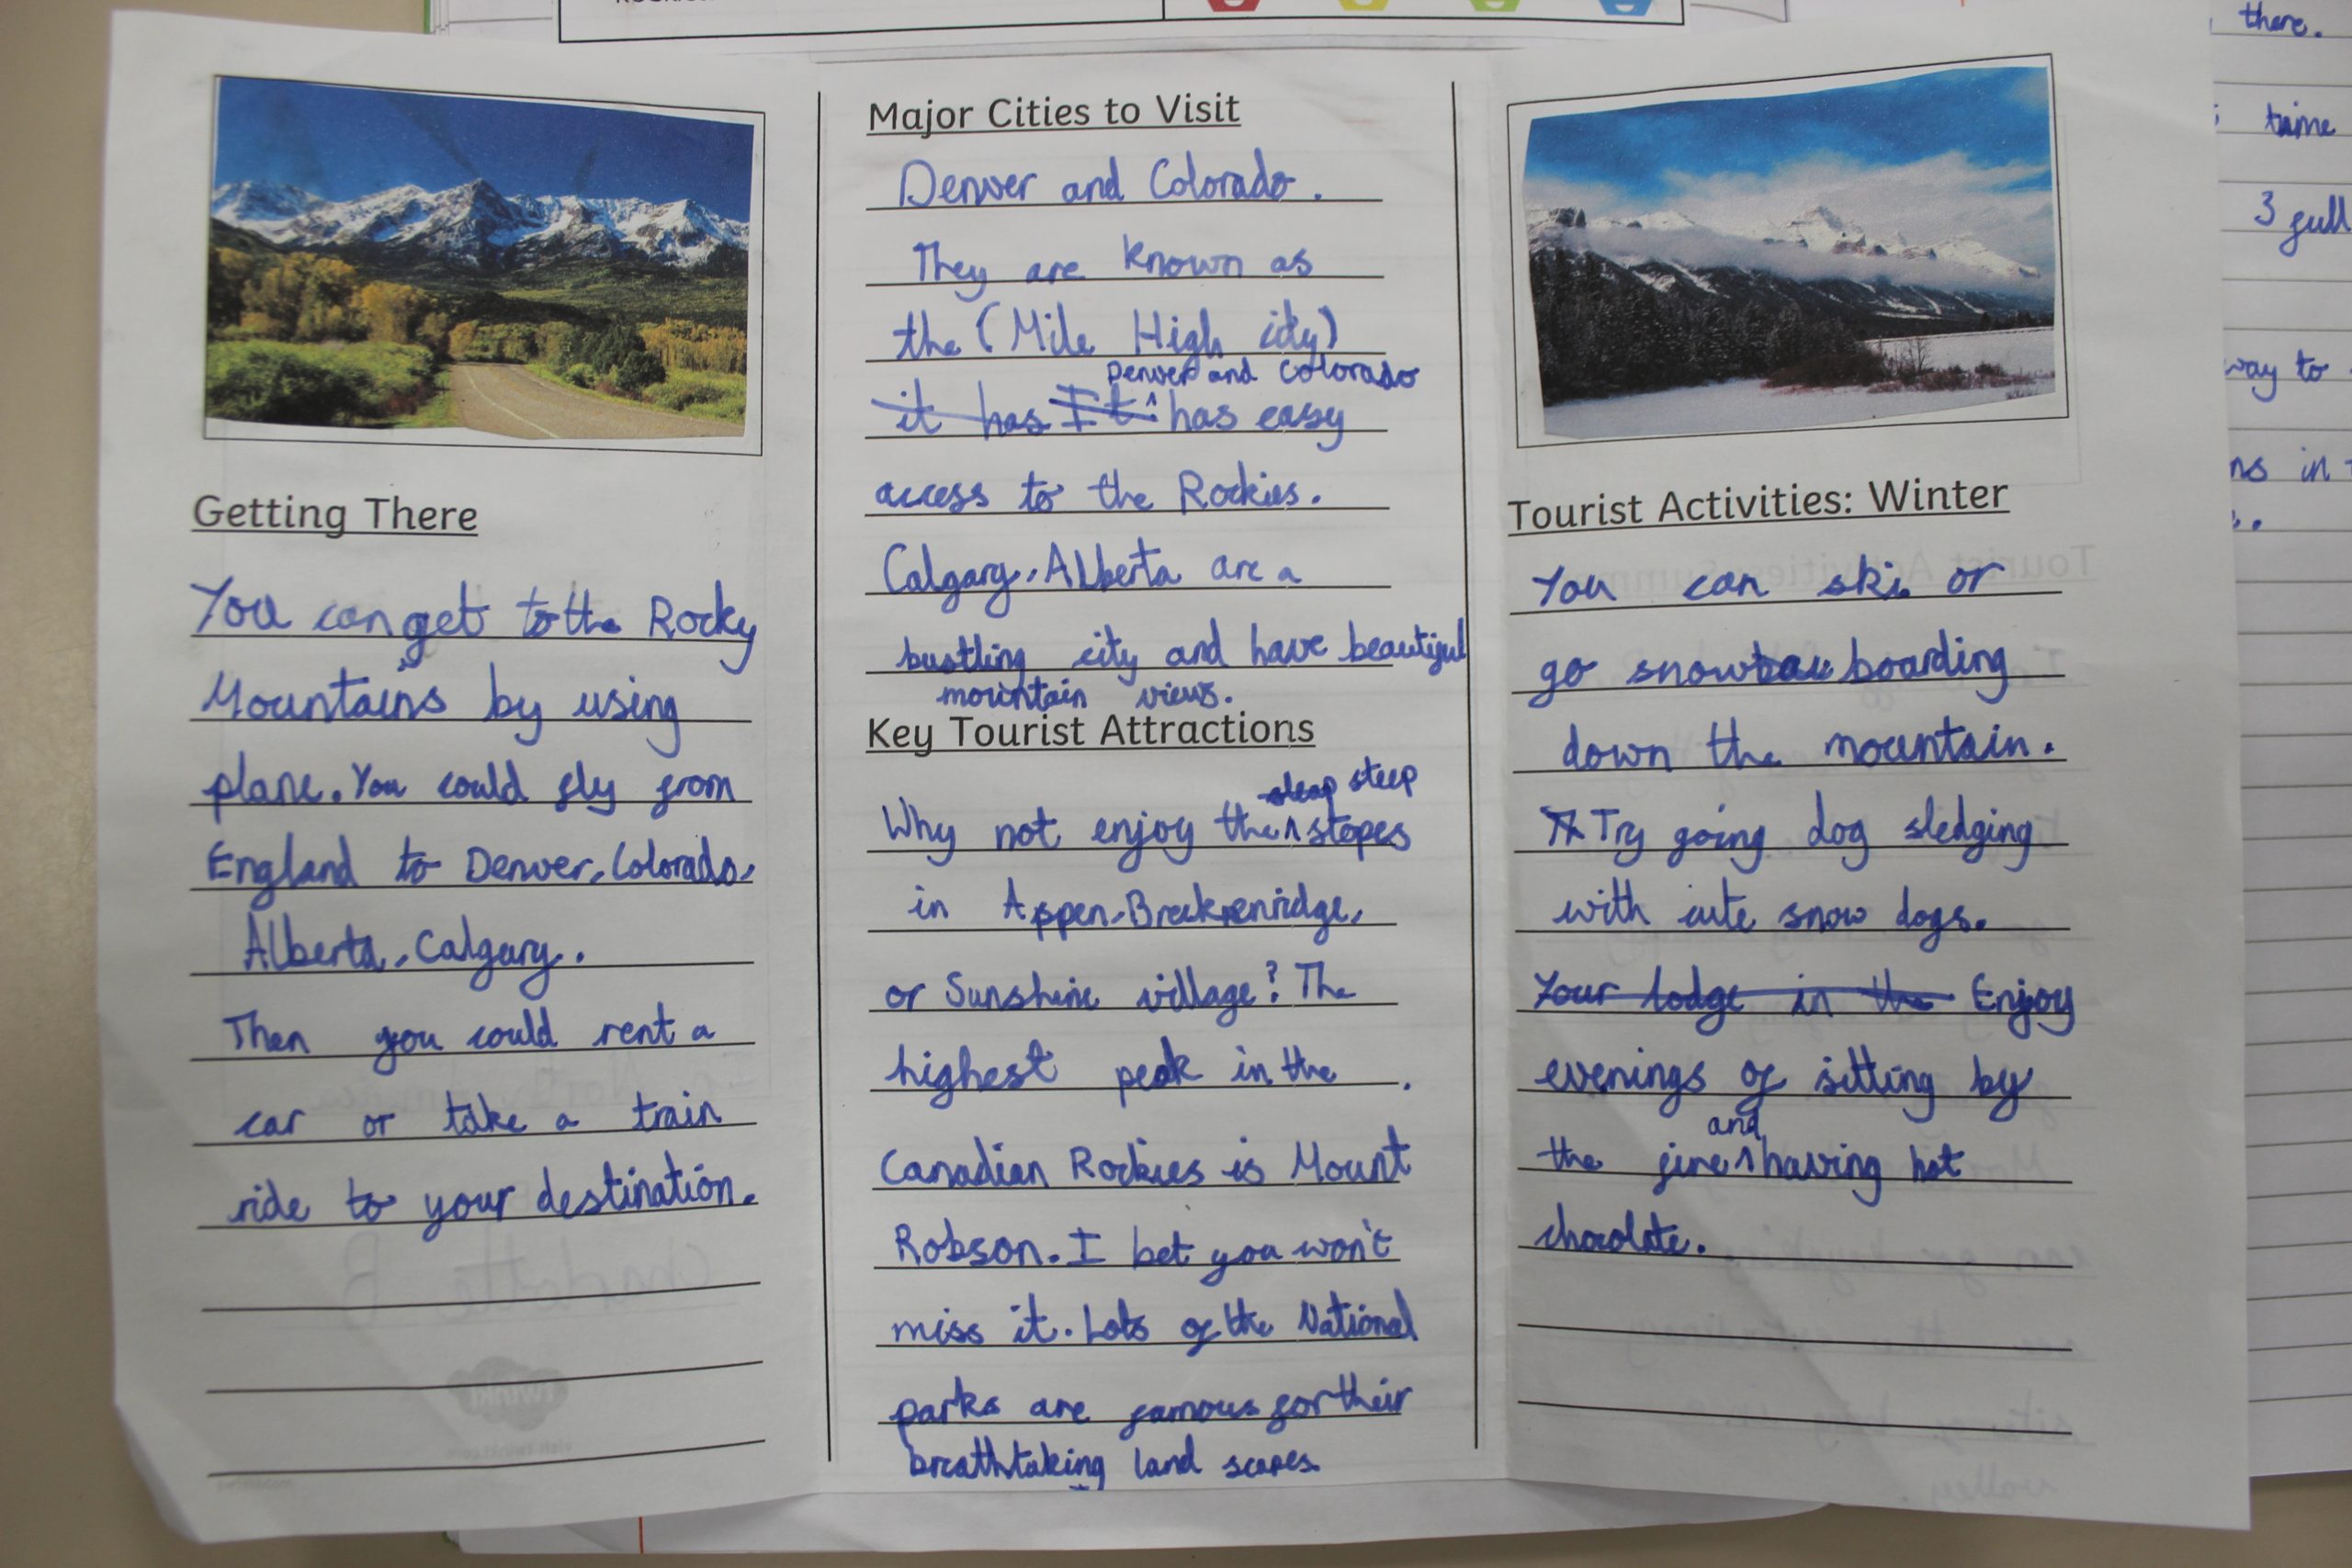 Getting There
You can get to the Rocky
Mountains by using
plane. You could fly from
England to Denver, Colorado,
Alberta, Calgary.
Then you could rent a
car or take a train
ride to your destination.
Major Cities to Visit
Denver and Colorado.
They are known as
the (Mile High city)
Denver and Colorado
it has It has easy
access to the Rockies.
Calgary, Alberta are a
bustling city and have beautiful
mountain views.
Key Tourist Attractions
steep
Why not enjoy the slopes
in Aspen, Breckenridge,
or Sunshine village? The
highest peak in the
Canadian Rockies is Mount
Robson. I bet you won't
miss it. Lots of the National
parks are famous for their
breathtaking land scapes
Tourist Activities: Winter
You can ski or
go snow boarding
down the mountain.
Try going dog sledging
with cute snow dogs.
Your lodge in the Enjoy
evenings of sitting by
and
the fire having hot
chocolate.
there.
time
3 full
way to
ns in